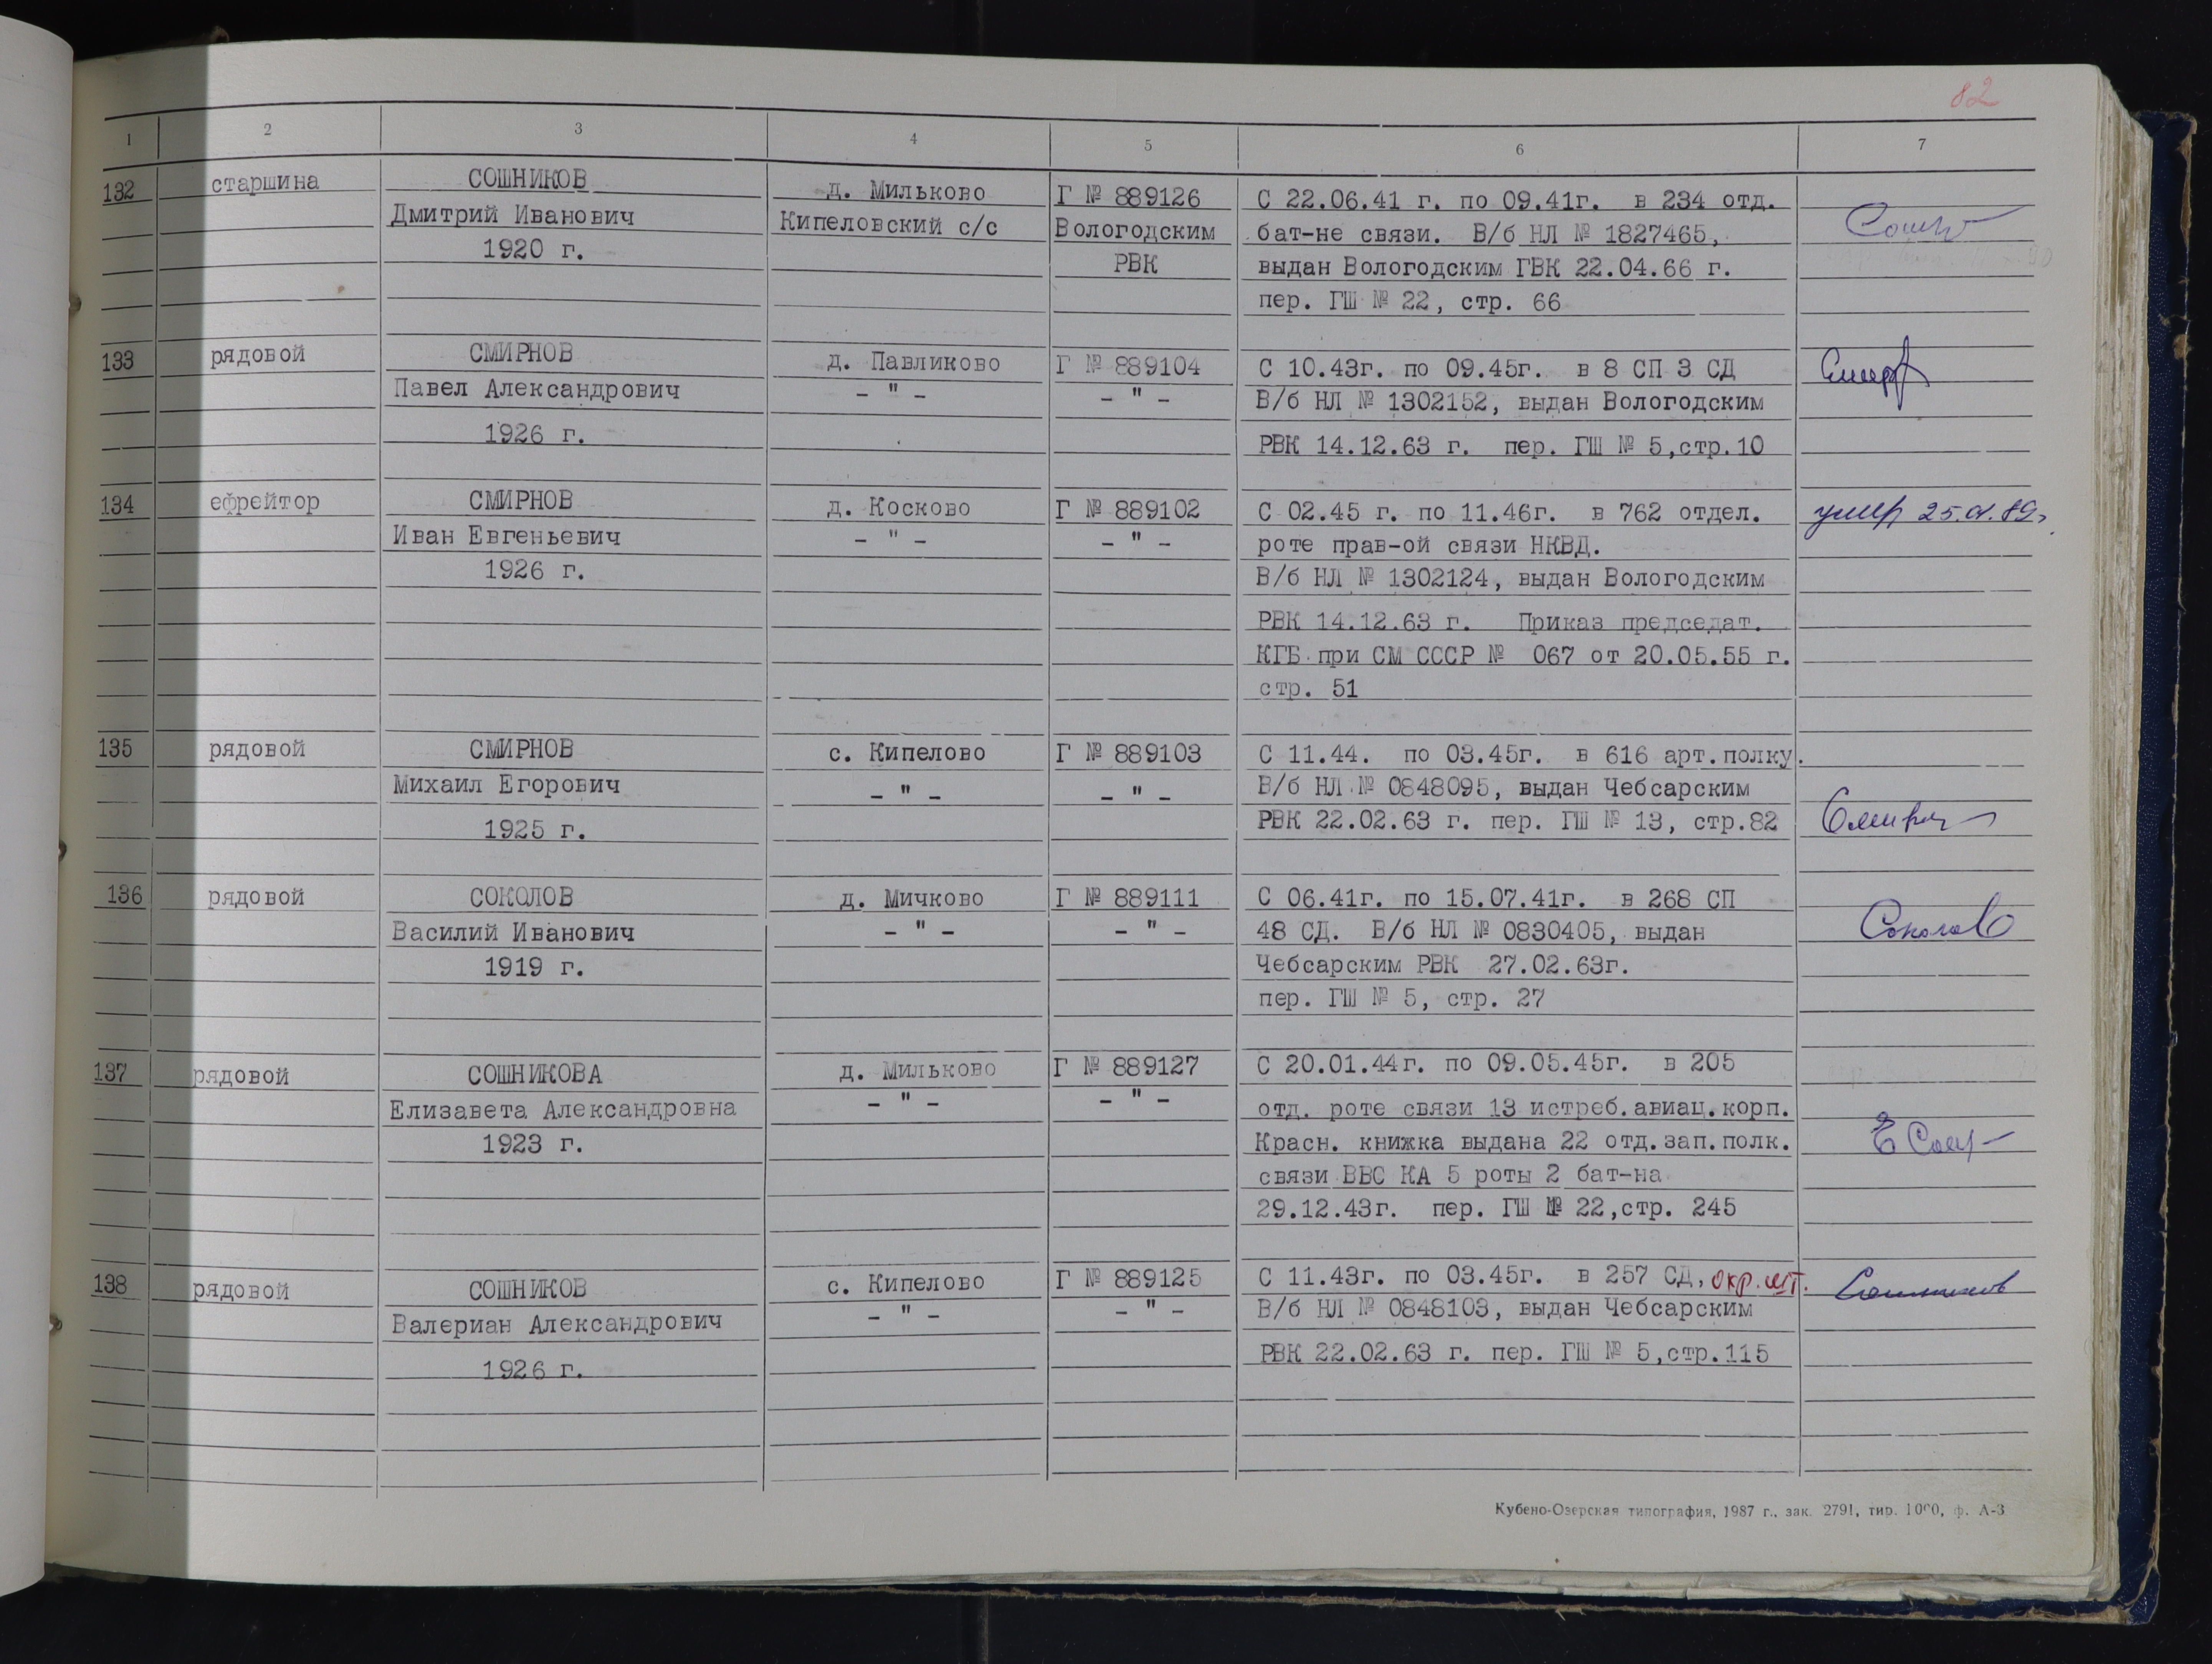 82
1 2 3 4 5 6 7
132 старшина СОШНИКОВ д. Мильково Г № 889126 С 22.06.41 г. по 09.41г. в 234 отд.
Дмитрий Иванович Кипеловский с/с Вологодским бат-не связи. В/б НЛ № 1827465,
1920 г. РВК выдан Вологодским ГВК 22.04.66 г.
пер. ГШ № 22, стр. 66
133 рядовой СМИРНОВ д. Павликово Г № 889104 С 10.43г. по 09.45г. в 8 СП 3 СД
Павел Александрович – " – – " – В/б НЛ № 1302152, выдан Вологодским
1926 г. РВК 14.12.63 г. пер. ГШ № 5,стр.10
134 ефрейтор СМИРНОВ д. Косково Г № 889102 С 02.45 г. по 11.46г. в 762 отдел. умер
Иван Евгеньевич – " – – " – роте прав-ой связи НКВД.
1926 г. В/б НЛ № 1302124, выдан Вологодским
РВК 14.12.63 г. Приказ председат.
КГБ при СМ СССР № 067 от 20.05.55 г.
стр. 51
135 рядовой СМИРНОВ с. Кипелово Г № 889103 С 11.44. по 03.45г. в 616 арт.полку.
Михаил Егорович – " – – " – В/б НЛ № 0848095, выдан Чебсарским
1925 г. РВК 22.02.63 г. пер. ГШ № 13, стр.82
136 рядовой СОКОЛОВ д. Мичково Г № 889111 С 06.41г. по 15.07.41г. в 268 СП
Василий Иванович – " – – " – 48 СД. В/б НЛ № 0830405, выдан Соколов
1919 г. Чебсарским РВК 27.02.63г.
пер. ГШ № 5, стр. 27
137 рядовой СОШНИКОВА д. Мильково Г № 889127 С 20.01.44г. по 09.05.45г. в 205
Елизавета Александровна – " – – " – отд. роте связи 13 истреб.авиац.корп.
1923 г. Красн. книжка выдана 22 отд.зап.полк.
связи ВВС КА 5 роты 2 бат-на
29.12.43г. пер. ГШ № 22,стр. 245
138 рядовой СОШНИКОВ с. Кипелово Г № 889125 С 11.43г. по 03.45г. в 257 СД, окр. шт. Сошников
Валериан Александрович – " – – " – В/б НЛ № 0848103, выдан Чебсарским
1926 г. РВК 22.02.63 г. пер. ГШ № 5,стр.115
Кубено-Озерская типография, 1987 г., зак. 2791, тир. 1000, ф. А-3